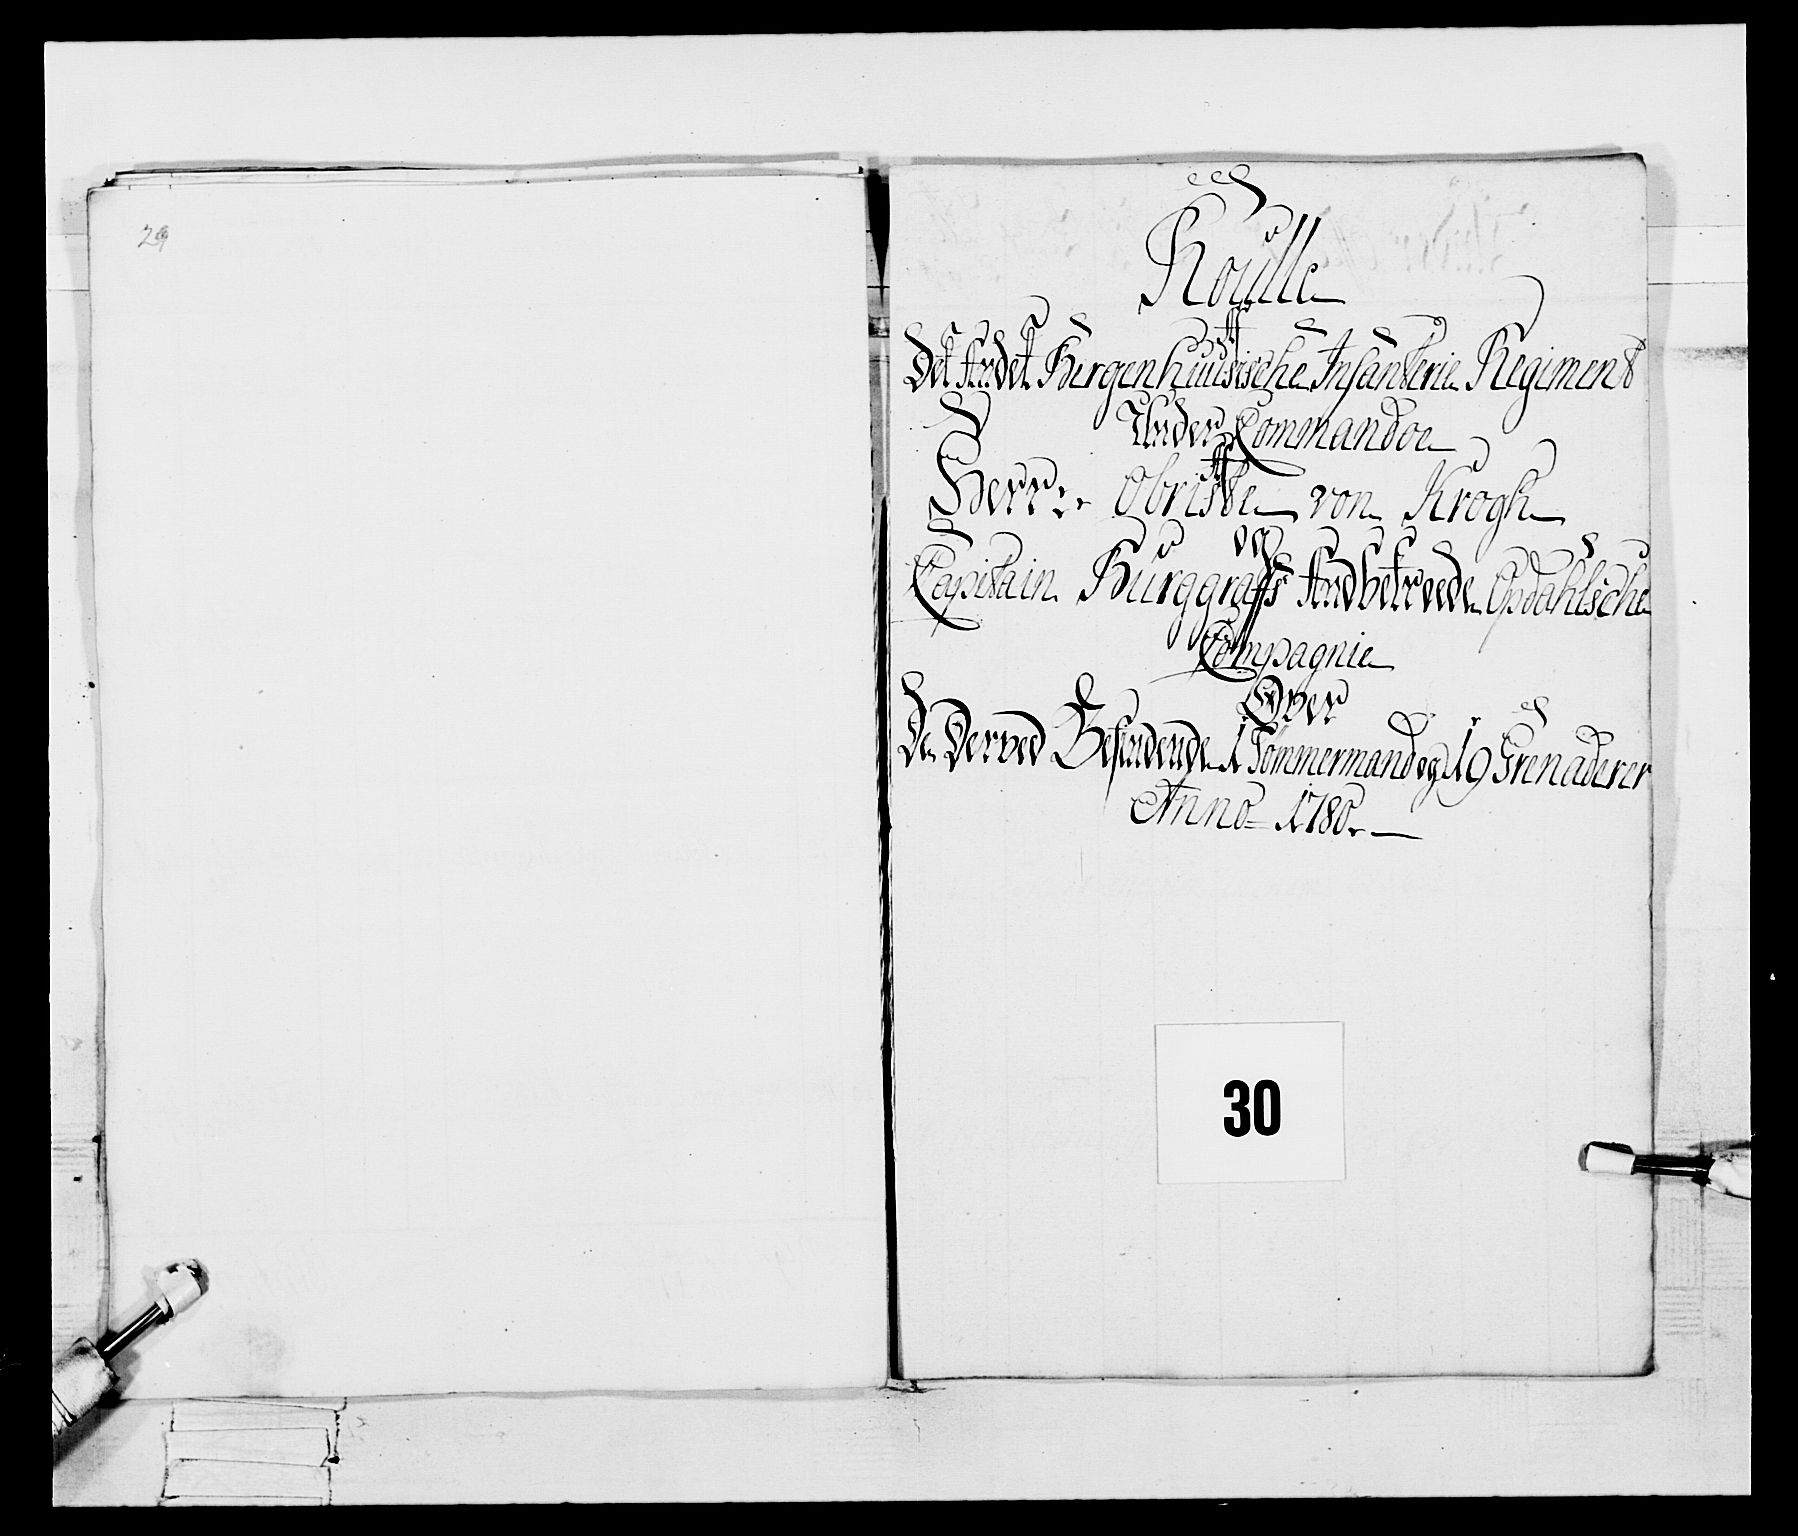 29
Roulle
Det Andet Bergenhuusische Infanterie Regiment
Under Commandoe
Herr Obriste von Krogh
og
Capitain Burggraffs Andbetroede Opdahlsche
Compagnie
Over
De Derved Befindende 1 Tømmermand og 19 Grenaderer
Anno 1780.
30